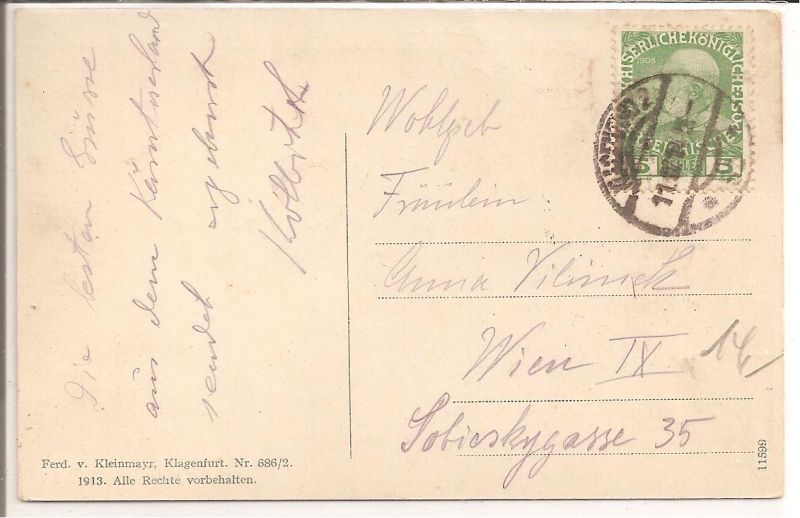 Die besten Grüsse
aus dem Kärntnerland
sendet ergebenst
Wohlgeb
Fräulein
Anna
Wien IX
Sobieskygasse 35
14/
KAISERLICHE KÖNIGLICHE ÖS
1908
5 5
KLAGENFURT 2
11
Ferd. v. Kleinmayr, Klagenfurt. Nr. 686/2.
1913. Alle Rechte vorbehalten.
11599